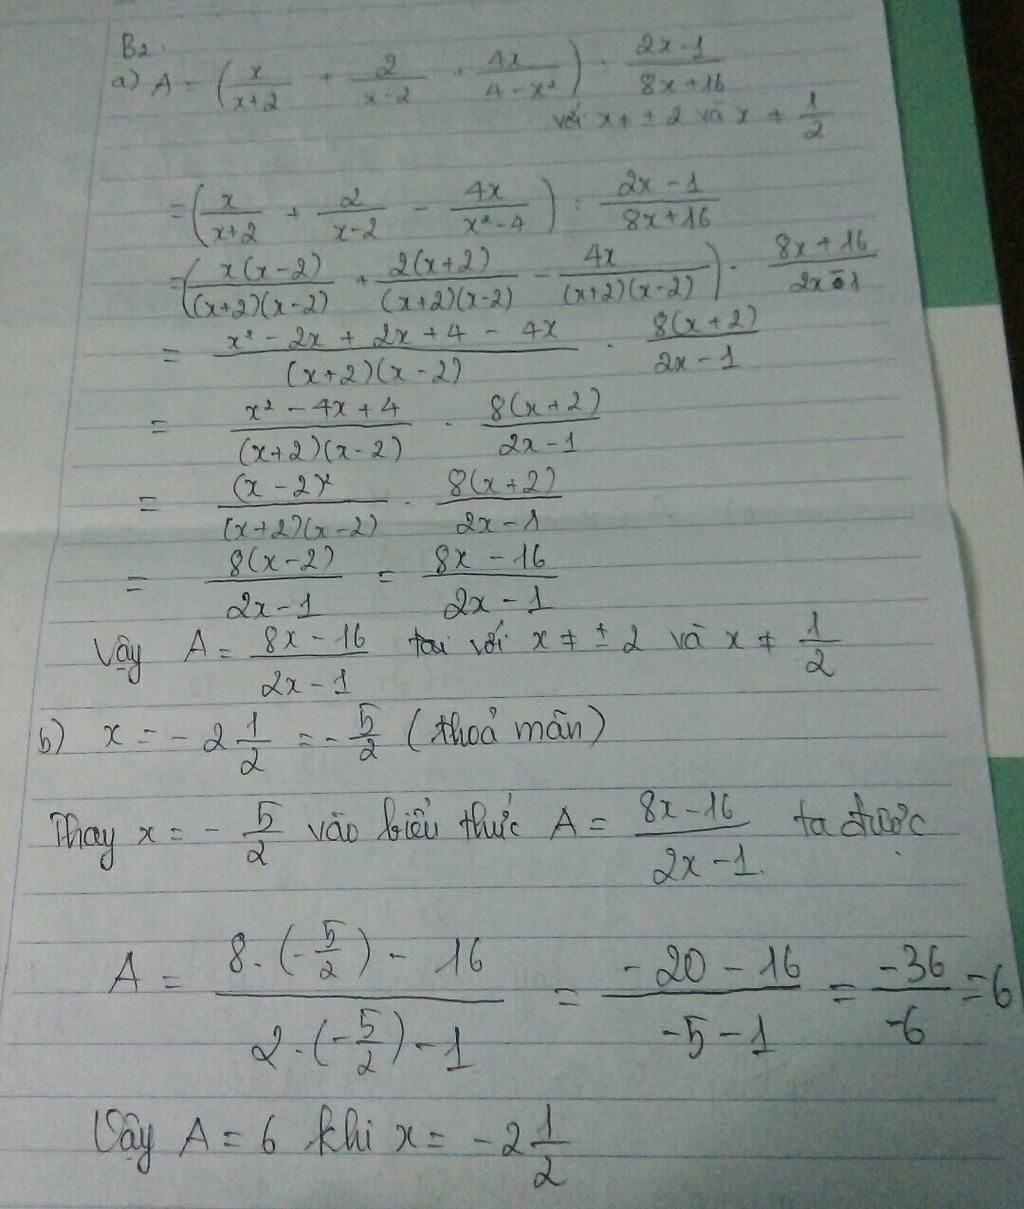 B2
a) A = (x/(x+2) + 2/(x-2) + 4x/(4-x²)) : (2x-1)/(8x+16)
với x ≠ ± 2 và x ≠ 1/2
= (x/(x+2) + 2/(x-2) - 4x/(x²-4)) : (2x-1)/(8x+16)
= (x(x-2)/((x+2)(x-2)) + 2(x+2)/((x+2)(x-2)) - 4x/((x+2)(x-2))) . (8x+16)/(2x-1)
= (x² - 2x + 2x + 4 - 4x)/((x+2)(x-2)) . 8(x+2)/(2x-1)
= (x² - 4x + 4)/((x+2)(x-2)) . 8(x+2)/(2x-1)
= (x-2)²/((x+2)(x-2)) . 8(x+2)/(2x-1)
= 8(x-2)/(2x-1) = (8x-16)/(2x-1)
Vậy A = (8x-16)/(2x-1) với x ≠ ± 2 và x ≠ 1/2
b) x = - 2 1/2 = - 5/2 (thoả mãn)
Thay x = - 5/2 vào biểu thức A = (8x-16)/(2x-1) ta được
A = (8.(-5/2) - 16)/(2.(-5/2) - 1) = (-20-16)/(-5-1) = -36/-6 = 6
Vậy A = 6 khi x = -2 1/2